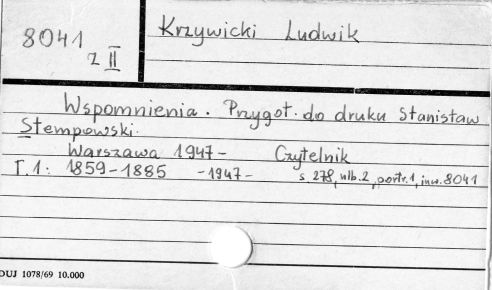 8041
z II
Krzywicki Ludwik
Wspomnienia. Przygot. do druku Stanisław
Stempowski.
Warszawa 1947- Czytelnik
T.1: 1859-1885 -1947- s. 278, nlb. 2, portr. 1, inw. 8041
DUJ 1078/69 10.000